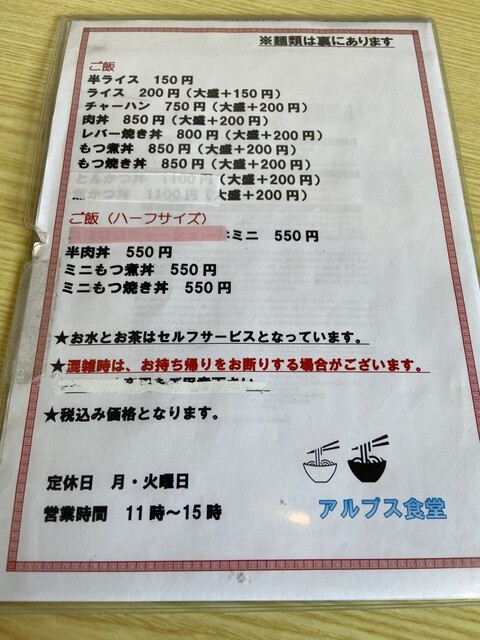 ※麺類は裏にあります
ご飯
半ライス 150円
ライス 200円（大盛＋150円）
チャーハン 750円（大盛＋200円）
肉丼 850円（大盛＋200円）
レバー焼き丼 800円（大盛＋200円）
もつ煮丼 850円（大盛＋200円）
もつ焼き丼 850円（大盛＋200円）
とんかつ丼 1100円（大盛＋200円）
かつ丼 1100円（大盛＋200円）
ご飯（ハーフサイズ）
ミニ 550円
半肉丼 550円
ミニもつ煮丼 550円
ミニもつ焼き丼 550円
★お水とお茶はセルフサービスとなっています。
★混雑時は、お持ち帰りをお断りする場合がございます。
★税込み価格となります。
定休日 月・火曜日
営業時間 11時～15時
アルプス食堂